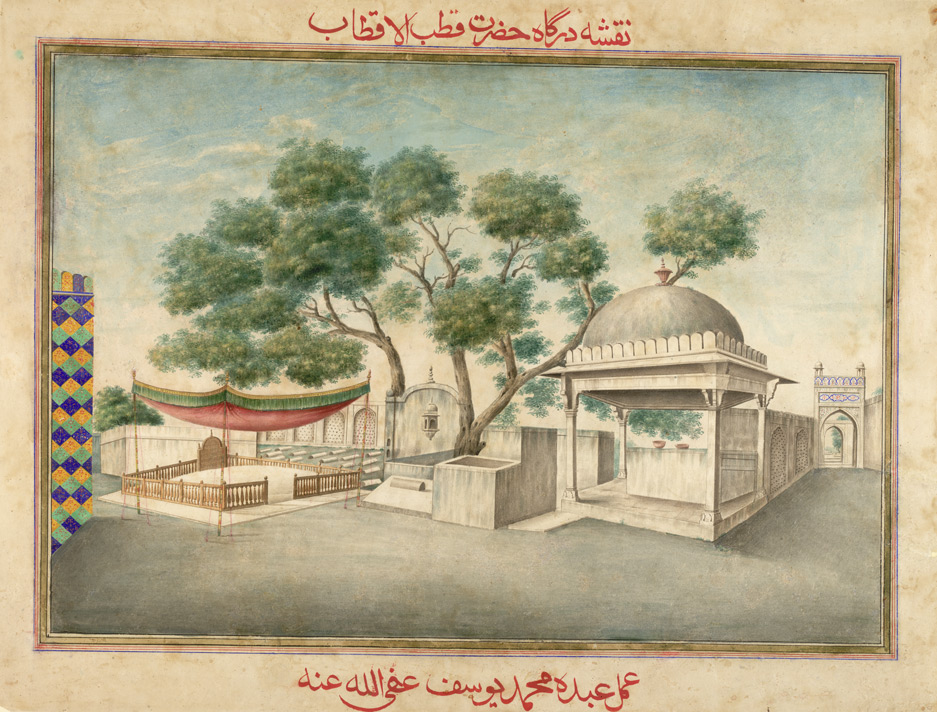 نقشه درگاه حضرت قطب الاقطاب
عمل عبده محمد یوسف عفی الله عنه